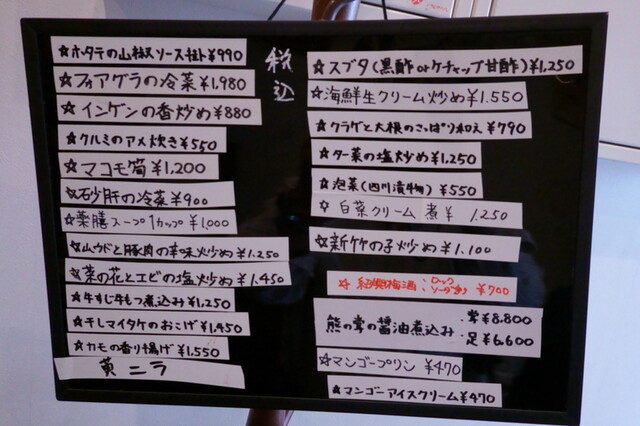 ☆ホタテの山椒ソース掛け¥990
☆フォアグラの冷菜¥1,980
☆インゲンの香炒め¥880
☆クルミのアメ炊き¥550
☆マコモ筒¥1,200
☆砂肝の冷菜¥900
☆薬膳スープ1カップ¥1,000
☆ムウドと豚肉の辛味炒め¥1,250
☆菜の花とエビの塩炒め¥1,450
☆牛すじ牛もつ煮込み¥1,250
☆干しマイタケのおこげ¥1,450
☆カモの香り揚げ¥1,550
黄ニラ
税込
☆スブタ(黒酢orケチャップ甘酢)¥1,250
☆海鮮生クリーム炒め¥1,550
☆クラゲと大根のさっぱり和え¥790
☆ター菜の塩炒め¥1,250
☆泡菜(四川漬物)¥550
☆白菜クリーム煮¥1,250
☆新竹の子炒め¥1,100
☆ 梅酒:ロック :ソーダ割り ¥700
熊の掌の醤油煮込み
・掌¥8,800
・足¥6,600
☆マンゴープリン ¥470
☆マンゴーアイスクリーム¥470